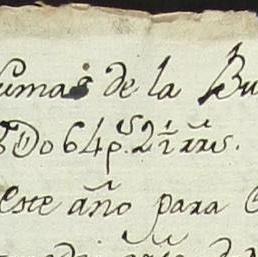 sumas de la Bu
Do 64 p.s 2½ rr.s
este año para